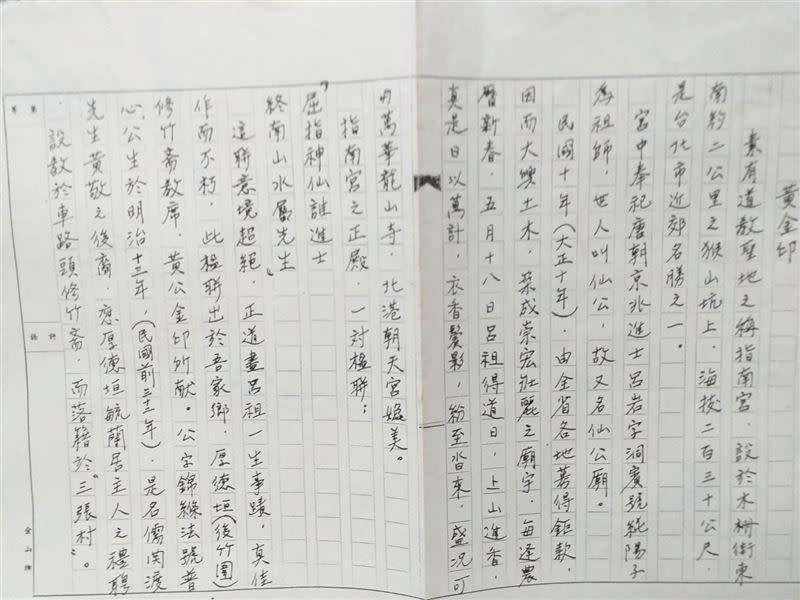 黃金印
素有道教聖地之稱指南宮．設於木柵街東
南約二公里之猴山坑上．海拔二百三十公尺．
是台北市近郊名勝之一。
宮中奉祀唐朝京兆進士呂岩字洞賓號純陽子
為祖師，世人叫仙公，故又名仙公廟。
民國十年（大正十年）．由全省各地募得鉅款，
因而大興土木．築成崇宏壯麗之廟宇．每逢農
曆新春．五月十八日呂祖得道日，上山進香，
真是日以萬計．衣香鬢影，紛至沓來，盛況可
與萬華龍山寺．北港朝天宮媲美。
指南宮之正殿．一對楹聯；
「屈指神仙誰進士
終南山水屬先生」
這聯意境超絕．正道盡呂祖一生事蹟，真佳
作而不朽，此楹聯出於吾家鄉．厚德垣（後竹圍）
修竹斋教席．黃公金印所献。公字錦絲法號普
心，公生於明治十三年，（民國前三十二年）．是名儒関渡
先生黃敬之後裔．應厚德垣毓蘭居主人之禮聘
設教於車路頭修竹斋．而落籍於"三張村"。
金山牌